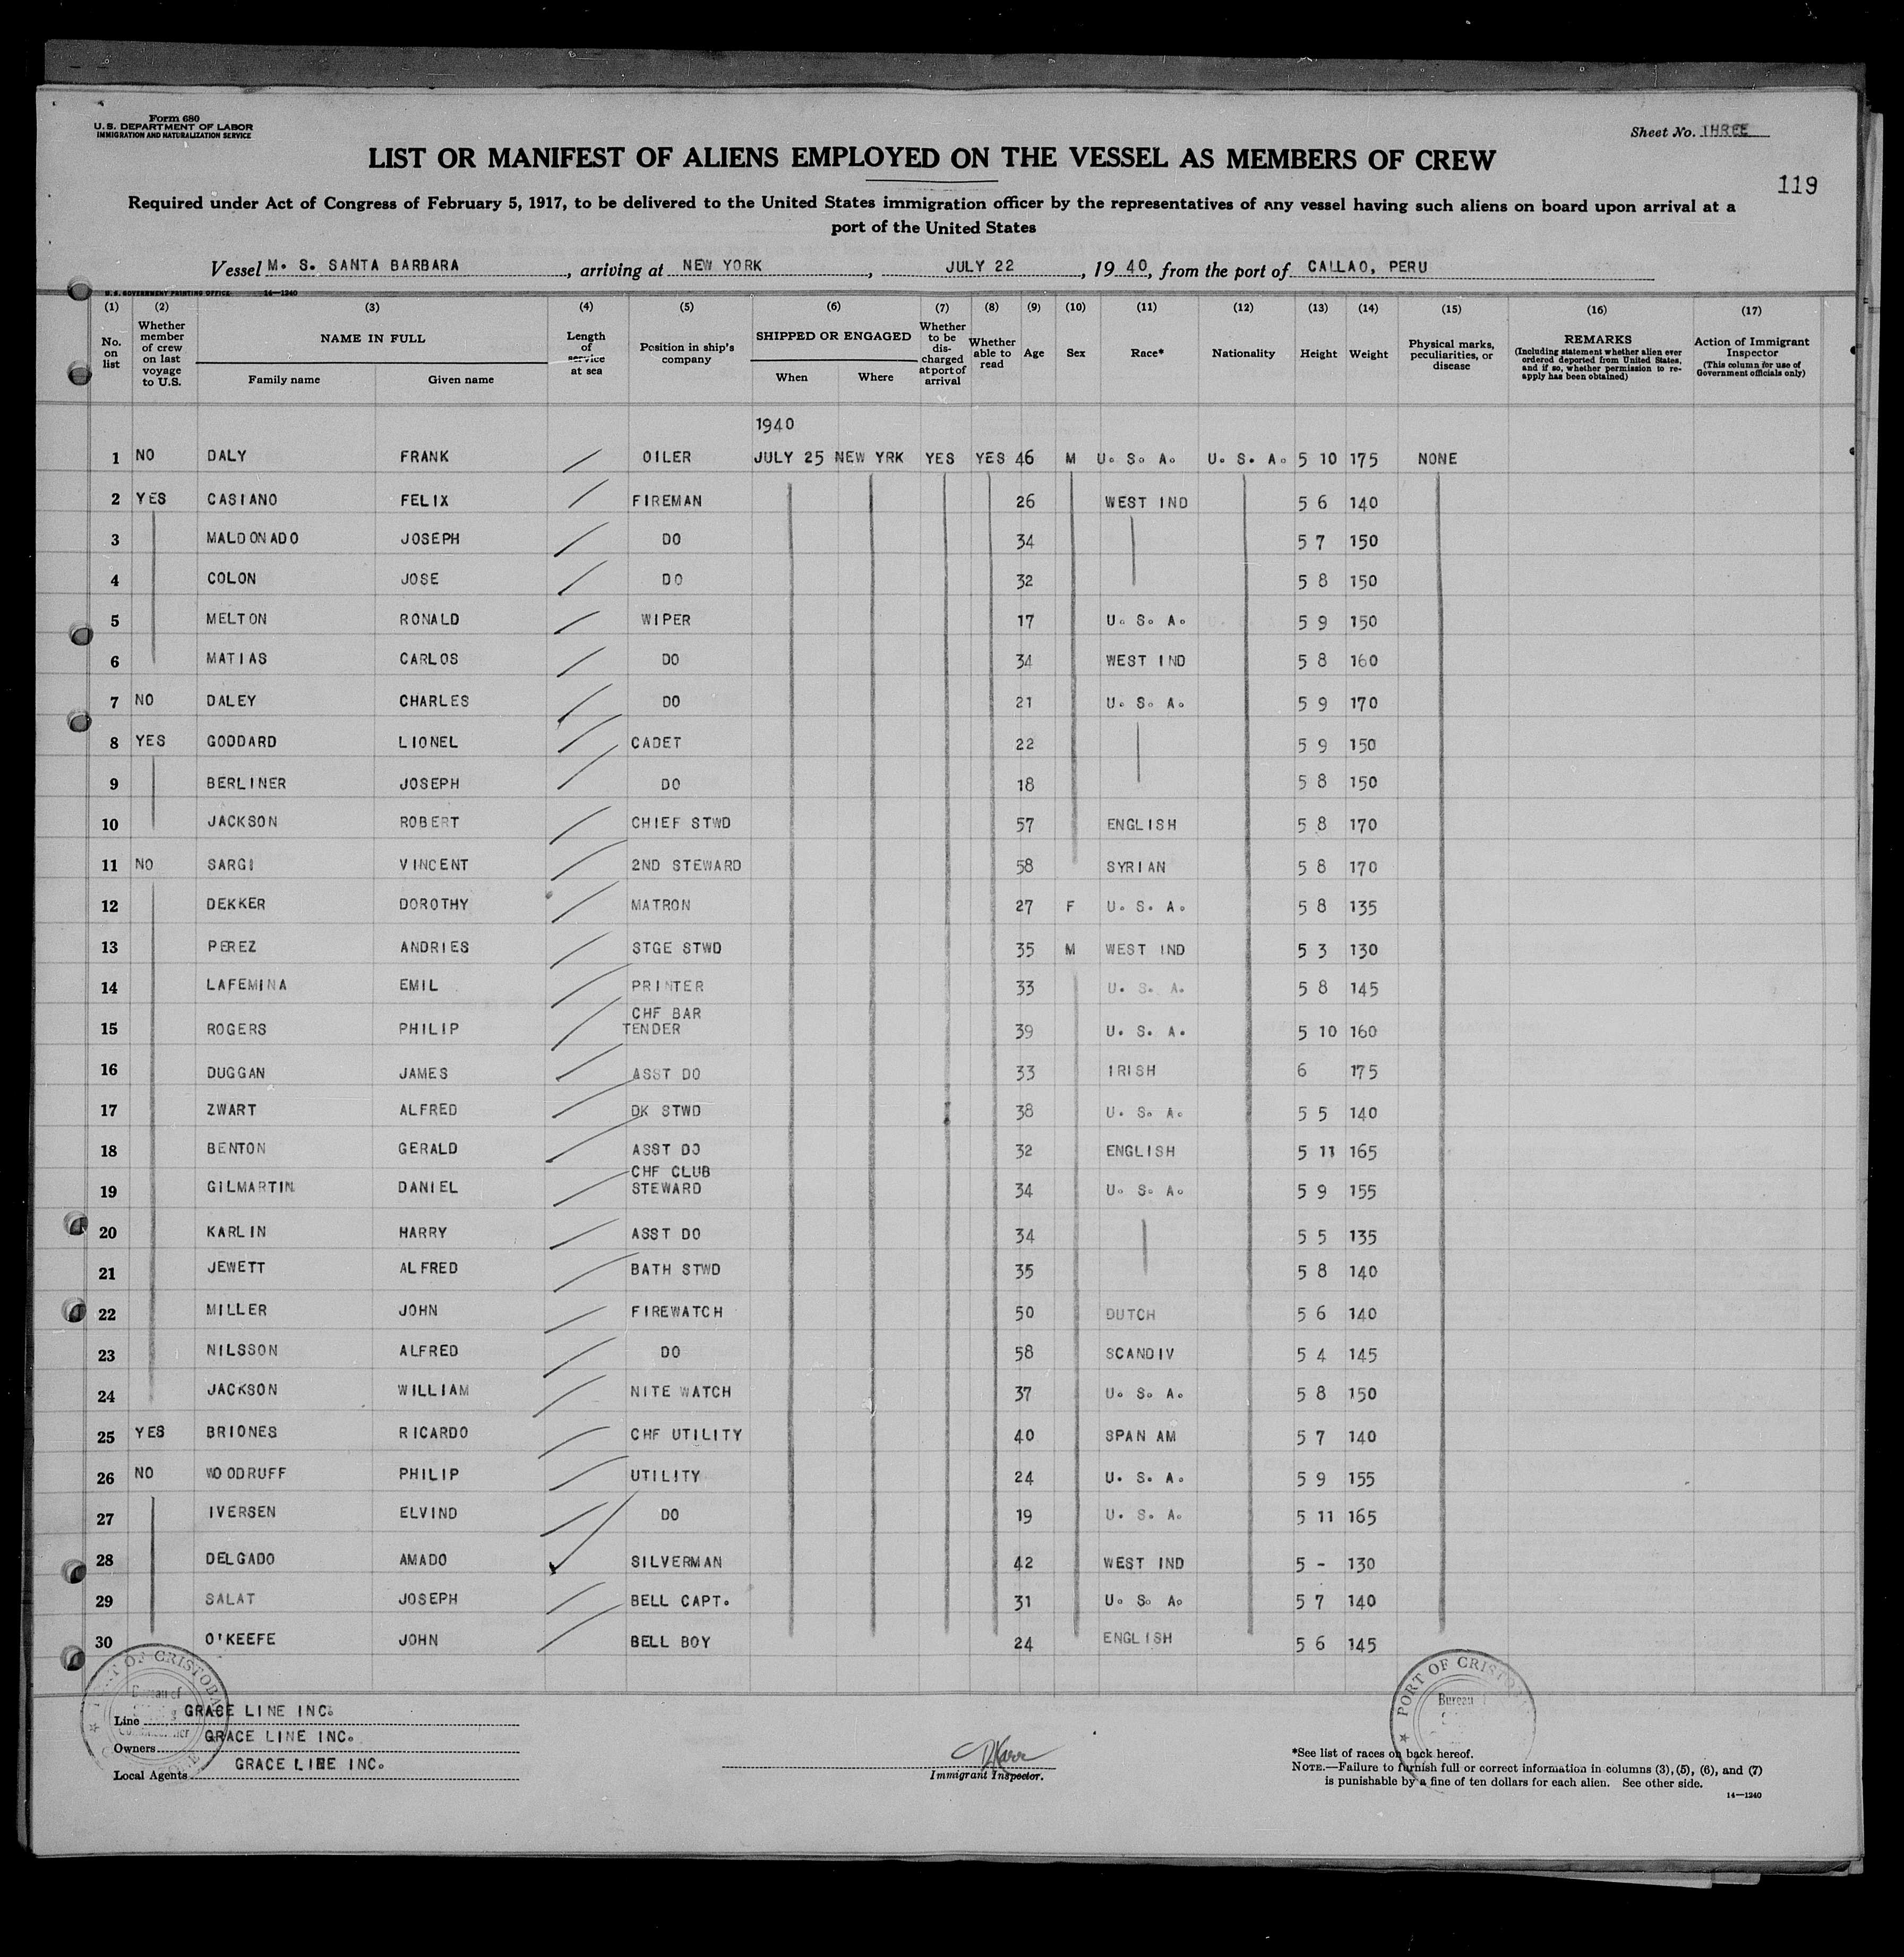 Form 680
U. S. DEPARTMENT OF LABOR
IMMIGRATION AND NATURALIZATION SERVICE
Sheet No. THREE
LIST OR MANIFEST OF ALIENS EMPLOYED ON THE VESSEL AS MEMBERS OF CREW
119
Required under Act of Congress of February 5, 1917, to be delivered to the United States immigration officer by the representatives of any vessel having such aliens on board upon arrival at a
port of the United States
Vessel M. S. SANTA BARBARA, arriving at NEW YORK, JULY 22, 1940, from the port of CALLAO, PERU
U. S. GOVERNMENT PRINTING OFFICE 14—1240
(1) (2) (3) (4) (5) (6) (7) (8) (9) (10) (11) (12) (13) (14) (15) (16) (17)
No. on list
Whether member of crew on last voyage to U.S.
NAME IN FULL
Family name
Given name
Length of service at sea
Position in ship's company
SHIPPED OR ENGAGED
When
Where
Whether to be discharged at port of arrival
Whether able to read
Age
Sex
Race*
Nationality
Height
Weight
Physical marks, peculiarities, or disease
REMARKS
(Including statement whether alien ever ordered deported from United States, and if so, whether permission to re-apply has been obtained)
Action of Immigrant Inspector
(This column for use of Government officials only)
1940
1 NO DALY FRANK OILER JULY 25 NEW YRK YES YES 46 M U. S. A. U. S. A. 5 10 175 NONE
2 YES CASIANO FELIX FIREMAN 26 WEST IND 5 6 140
3 MALDONADO JOSEPH DO 34 5 7 150
4 COLON JOSE DO 32 5 8 150
5 MELTON RONALD WIPER 17 U. S. A. 5 9 150
6 MATIAS CARLOS DO 34 WEST IND 5 8 160
7 NO DALEY CHARLES DO 21 U. S. A. 5 9 170
8 YES GODDARD LIONEL CADET 22 5 9 150
9 BERLINER JOSEPH DO 18 5 8 150
10 JACKSON ROBERT CHIEF STWD 57 ENGLISH 5 8 170
11 NO SARGI VINCENT 2ND STEWARD 58 SYRIAN 5 8 170
12 DEKKER DOROTHY MATRON 27 F U. S. A. 5 8 135
13 PEREZ ANDRIES STGE STWD 35 M WEST IND 5 3 130
14 LAFEMINA EMIL PRINTER 33 U. S. A. 5 8 145
15 ROGERS PHILIP CHF BAR TENDER 39 U. S. A. 5 10 160
16 DUGGAN JAMES ASST DO 33 IRISH 6 175
17 ZWART ALFRED DK STWD 38 U. S. A. 5 5 140
18 BENTON GERALD ASST DO 32 ENGLISH 5 11 165
19 GILMARTIN DANIEL CHF CLUB STEWARD 34 U. S. A. 5 9 155
20 KARLIN HARRY ASST DO 34 5 5 135
21 JEWETT ALFRED BATH STWD 35 5 8 140
22 MILLER JOHN FIREWATCH 50 DUTCH 5 6 140
23 NILSSON ALFRED DO 58 SCANDIV 5 4 145
24 JACKSON WILLIAM NITE WATCH 37 U. S. A. 5 8 150
25 YES BRIONES RICARDO CHF UTILITY 40 SPAN AM 5 7 140
26 NO WOODRUFF PHILIP UTILITY 24 U. S. A. 5 9 155
27 IVERSEN ELVIND DO 19 U. S. A. 5 11 165
28 DELGADO AMADO SILVERMAN 42 WEST IND 5 - 130
29 SALAT JOSEPH BELL CAPT. 31 U. S. A. 5 7 140
30 O'KEEFE JOHN BELL BOY 24 ENGLISH 5 6 145
PORT OF CRISTOBA
Bureau of
Line GRACE LINE INC.
Owners GRACE LINE INC.
Local Agents GRACE LINE INC.
Immigrant Inspector.
PORT OF CRISTO
Bureau
*See list of races on back hereof.
NOTE.—Failure to furnish full or correct information in columns (3), (5), (6), and (7)
is punishable by a fine of ten dollars for each alien. See other side.
14—1240